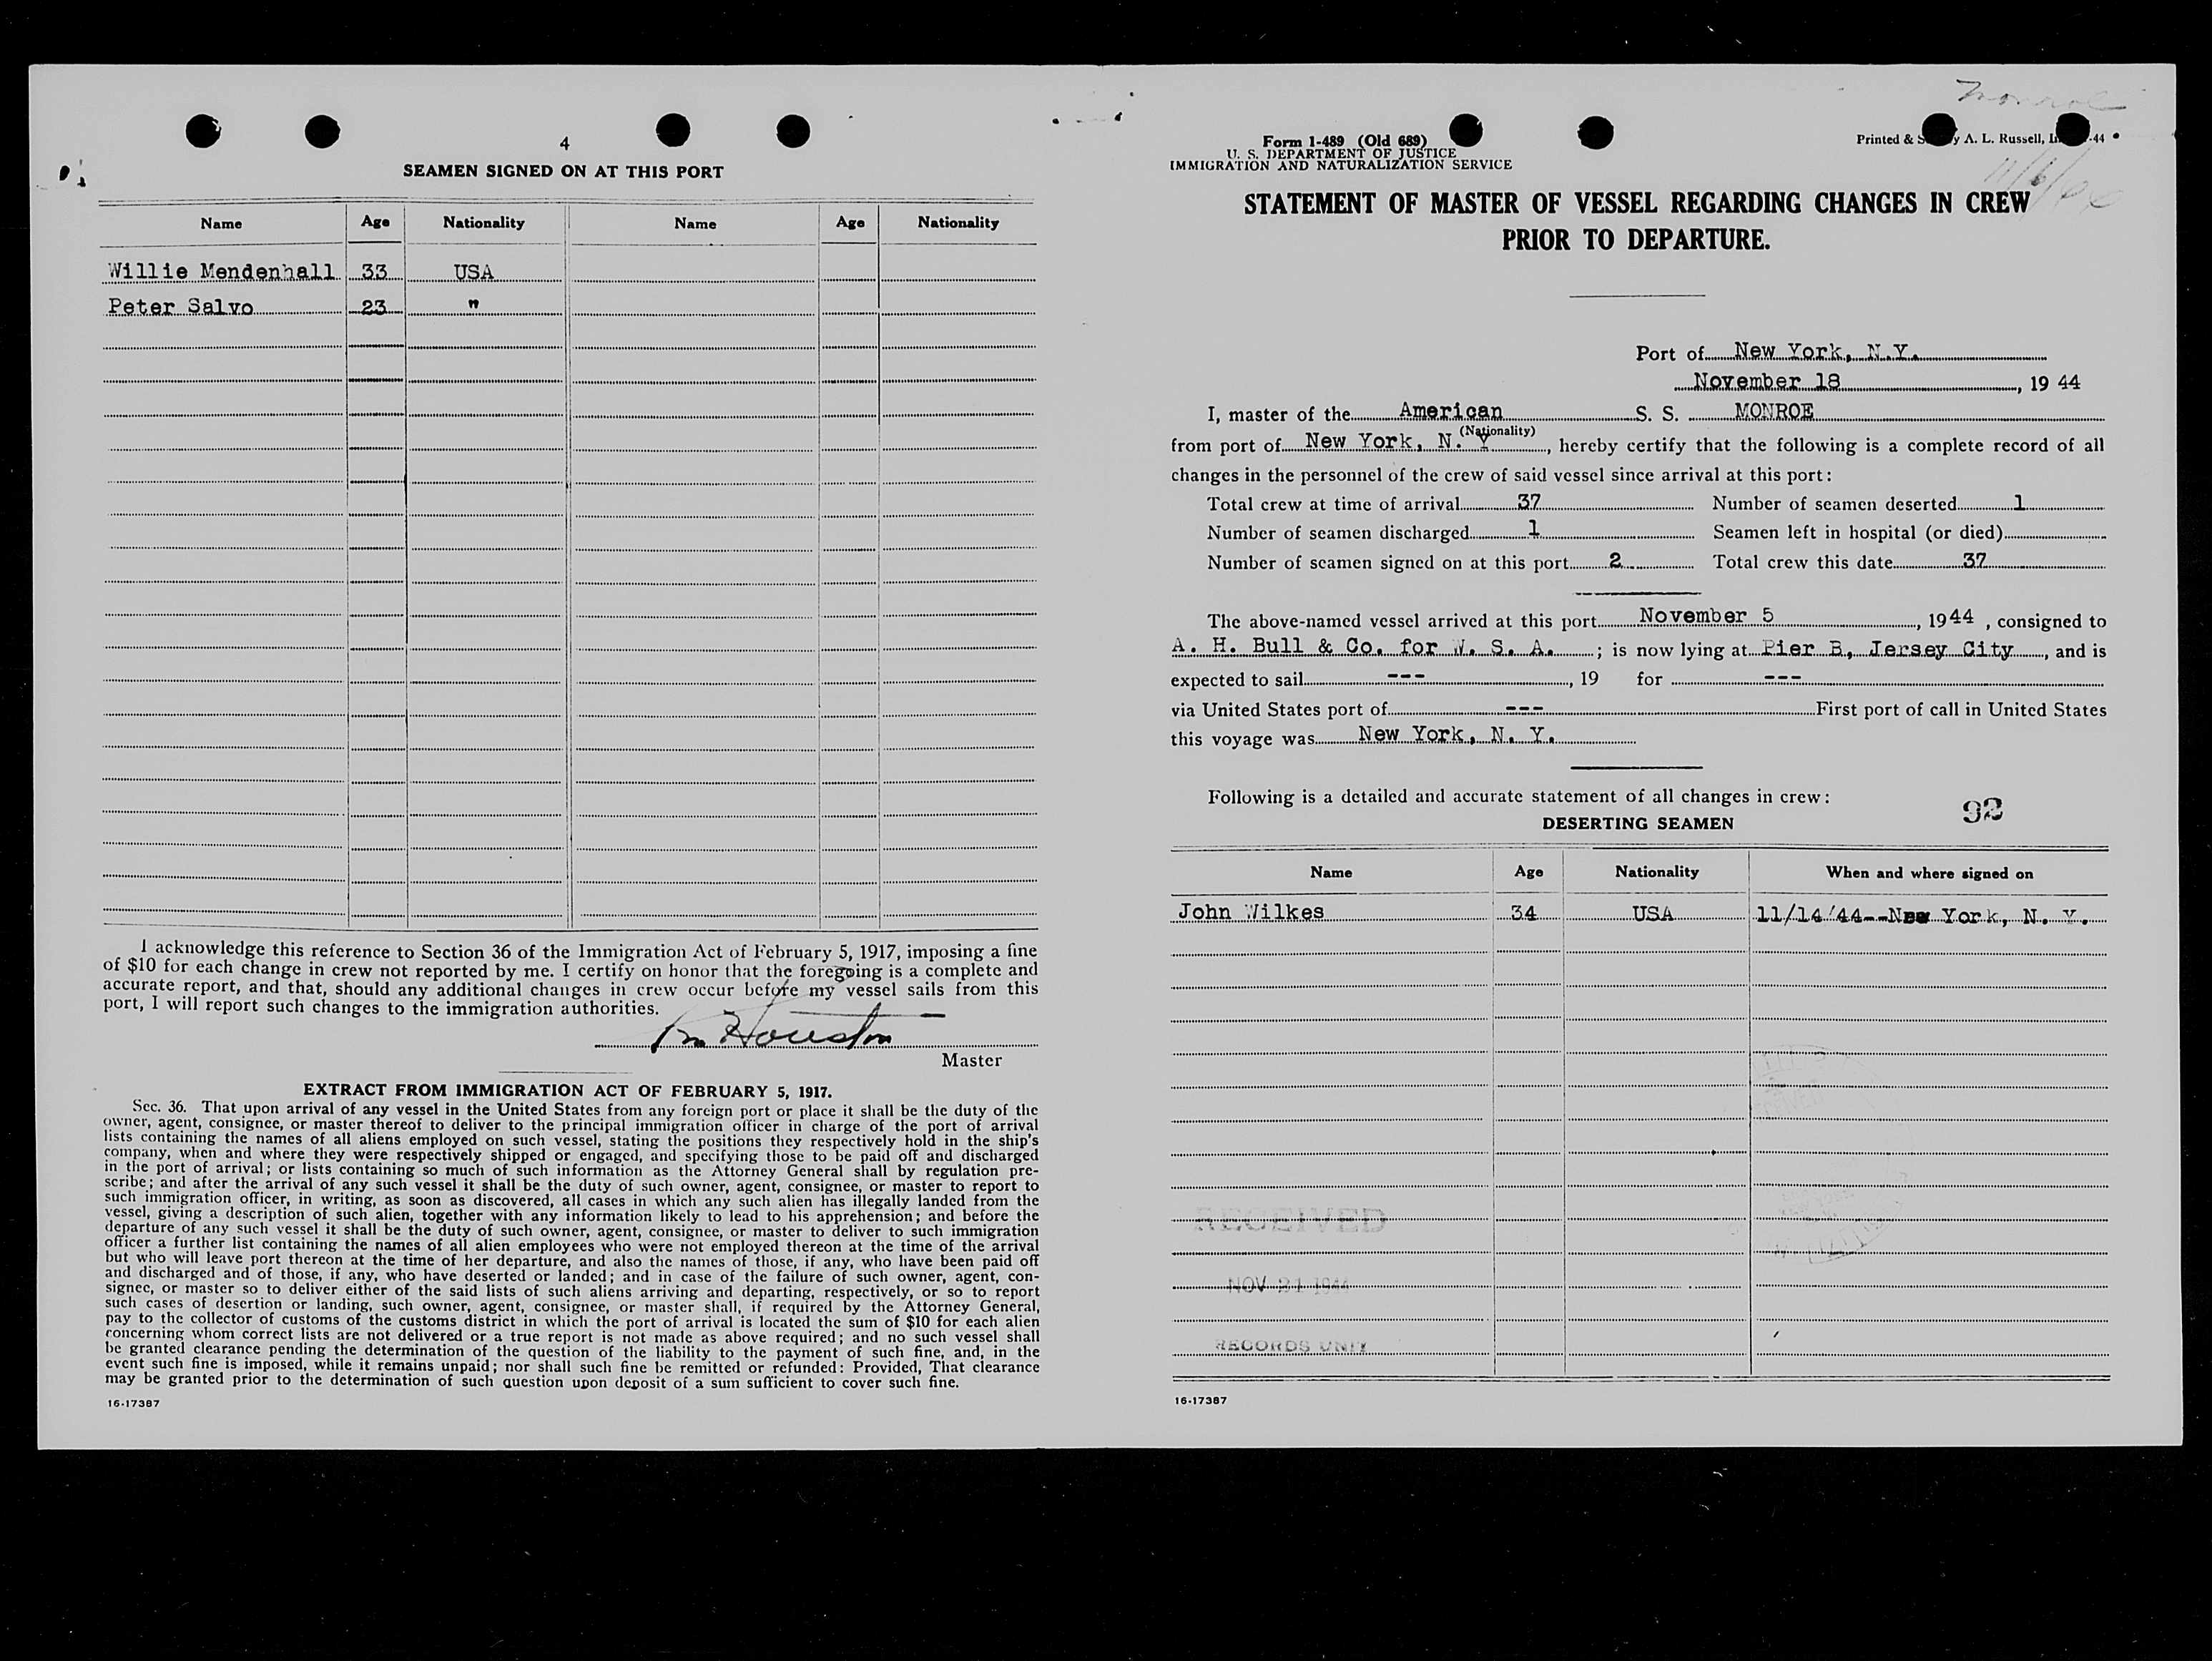 4
SEAMEN SIGNED ON AT THIS PORT
Name Age Nationality Name Age Nationality
Willie Mendenhall 33 USA
Peter Salvo 23 "
I acknowledge this reference to Section 36 of the Immigration Act of February 5, 1917, imposing a fine
of $10 for each change in crew not reported by me. I certify on honor that the foregoing is a complete and
accurate report, and that, should any additional changes in crew occur before my vessel sails from this
port, I will report such changes to the immigration authorities.
Houston
Master
EXTRACT FROM IMMIGRATION ACT OF FEBRUARY 5, 1917.
Sec. 36. That upon arrival of any vessel in the United States from any foreign port or place it shall be the duty of the
owner, agent, consignee, or master thereof to deliver to the principal immigration officer in charge of the port of arrival
lists containing the names of all aliens employed on such vessel, stating the positions they respectively hold in the ship's
company, when and where they were respectively shipped or engaged, and specifying those to be paid off and discharged
in the port of arrival; or lists containing so much of such information as the Attorney General shall by regulation pre-
scribe; and after the arrival of any such vessel it shall be the duty of such owner, agent, consignee, or master to report to
such immigration officer, in writing, as soon as discovered, all cases in which any such alien has illegally landed from the
vessel, giving a description of such alien, together with any information likely to lead to his apprehension; and before the
departure of any such vessel it shall be the duty of such owner, agent, consignee, or master to deliver to such immigration
officer a further list containing the names of all alien employees who were not employed thereon at the time of the arrival
but who will leave port thereon at the time of her departure, and also the names of those, if any, who have been paid off
and discharged and of those, if any, who have deserted or landed; and in case of the failure of such owner, agent, con-
signee, or master so to deliver either of the said lists of such aliens arriving and departing, respectively, or so to report
such cases of desertion or landing, such owner, agent, consignee, or master shall, if required by the Attorney General,
pay to the collector of customs of the customs district in which the port of arrival is located the sum of $10 for each alien
concerning whom correct lists are not delivered or a true report is not made as above required; and no such vessel shall
be granted clearance pending the determination of the question of the liability to the payment of such fine, and, in the
event such fine is imposed, while it remains unpaid; nor shall such fine be remitted or refunded: Provided, That clearance
may be granted prior to the determination of such question upon deposit of a sum sufficient to cover such fine.
16-17387
Monroe
Form 1-489 (Old 689)
U. S. DEPARTMENT OF JUSTICE
IMMIGRATION AND NATURALIZATION SERVICE
Printed & A. L. Russell, -44
STATEMENT OF MASTER OF VESSEL REGARDING CHANGES IN CREW
PRIOR TO DEPARTURE.
Port of New York, N.Y.
November 18, 19 44
I, master of the American S. S. MONROE
(Nationality)
from port of New York, N. Y, hereby certify that the following is a complete record of all
changes in the personnel of the crew of said vessel since arrival at this port:
Total crew at time of arrival 37 Number of seamen deserted 1
Number of seamen discharged 1 Seamen left in hospital (or died)
Number of seamen signed on at this port 2 Total crew this date 37
The above-named vessel arrived at this port November 5, 1944, consigned to
A. H. Bull & Co. for W. S. A.; is now lying at Pier B, Jersey City, and is
expected to sail ---, 19 for ---
via United States port of --- First port of call in United States
this voyage was New York, N. Y.
Following is a detailed and accurate statement of all changes in crew:
92
DESERTING SEAMEN
Name Age Nationality When and where signed on
John Wilkes 34 USA 11/14/44--New York, N. Y.
RECEIVED
NOV 21 1944
RECORDS UNIT
16-17387